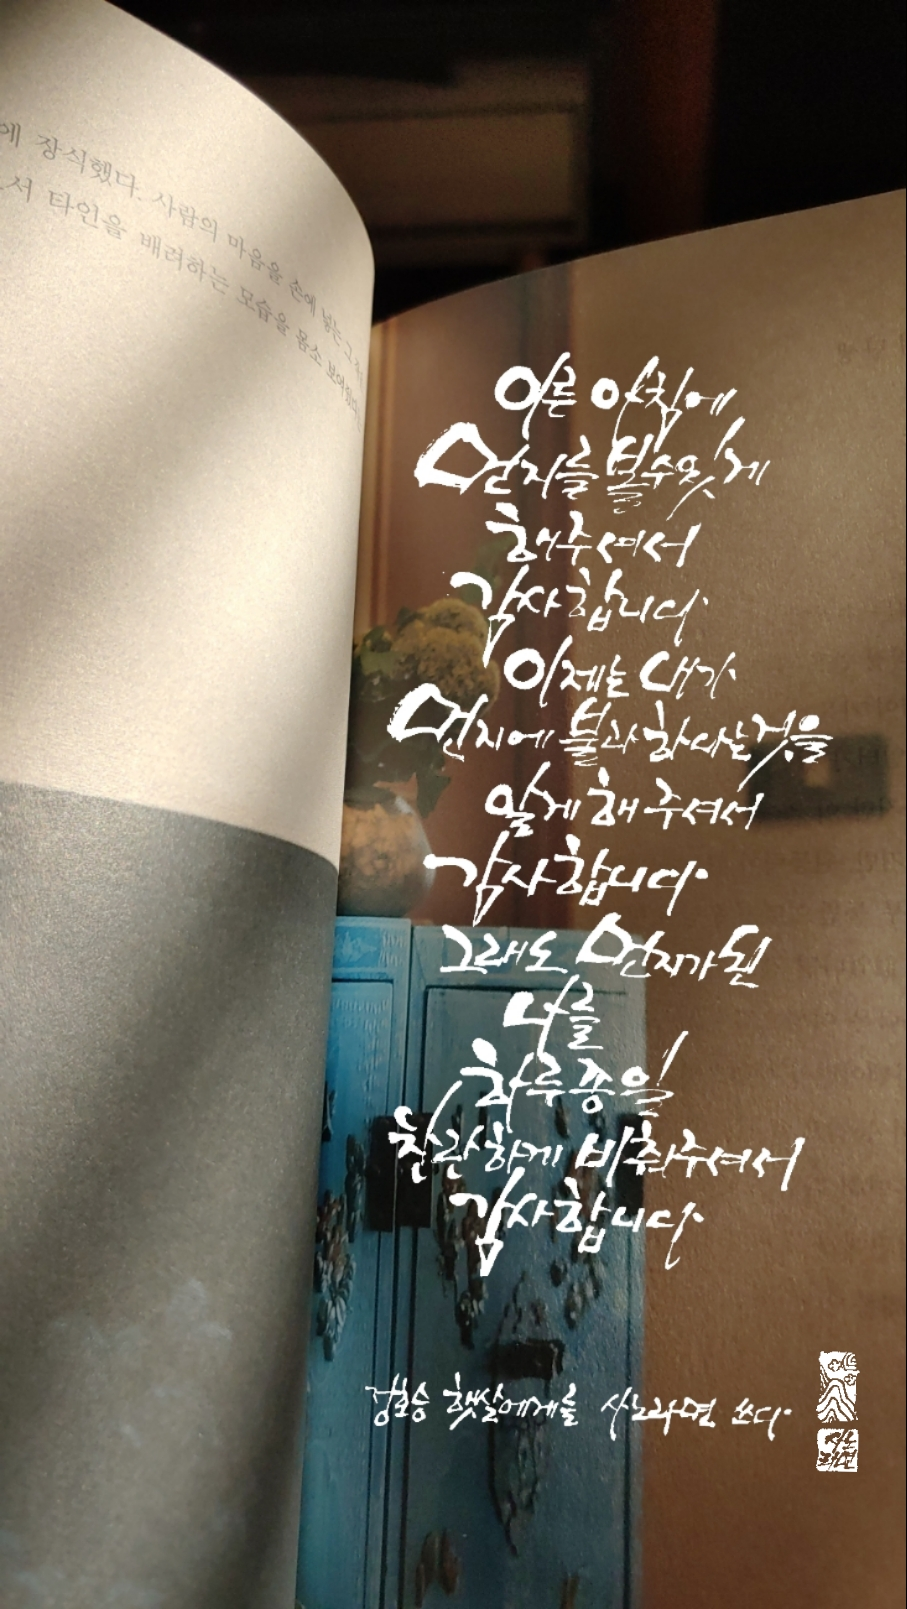 에 장식했다. 사람의 마음을 손에 넣는 그의
서 타인을 배려하는 모습을 몸소 보여줬다
이른 아침에
먼지를 볼 수 있게
해주셔서
감사합니다.
이제는 내가
먼지에 불과하다는 것을
알게 해 주셔서
감사합니다.
그래도 먼지가 된
나를
하루종일
찬란하게 비춰주셔서
감사합니다.
정호승 햇살에게를 사노라면 쓰다.
사노
라면